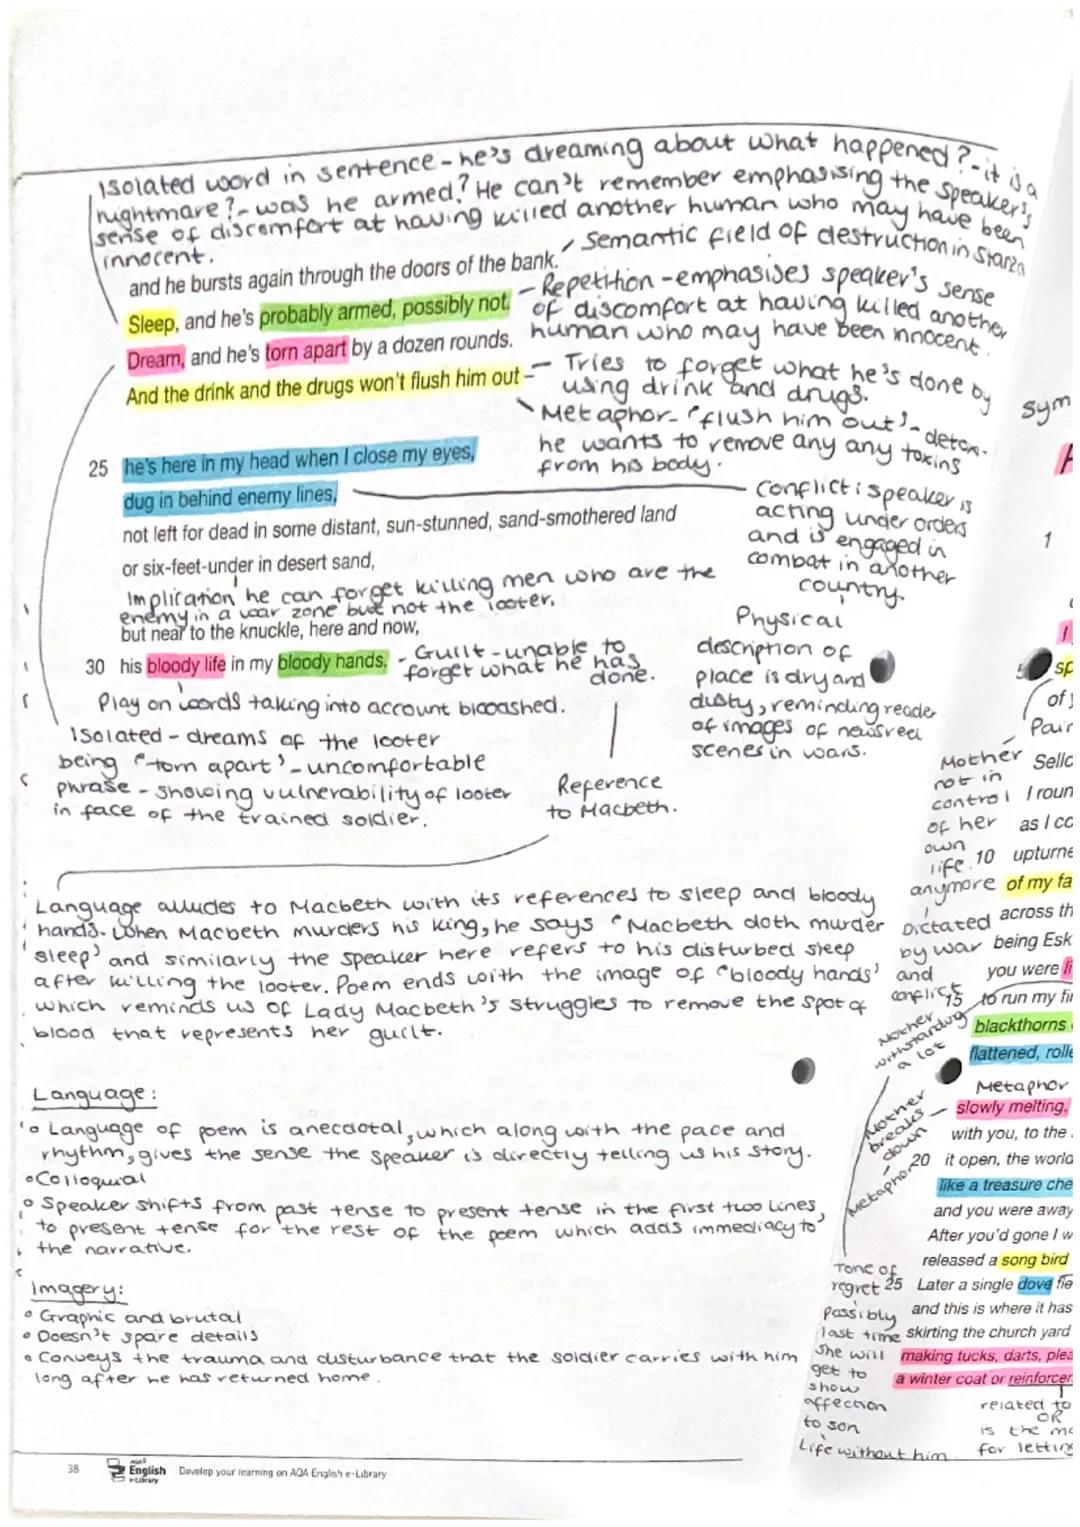 Isolated word in sentence - he's dreaming about what happened? - it is a
nightmare? - was he armed? He can't remember emphasising the speaker's
sense of discomfort at having killed another human who may have been
innocent.
and he bursts again through the doors of the bank.
Semantic field of destruction in Stanza
Sleep, and he's probably armed, possibly not.
- Repetition - emphasises speaker's sense
of discomfort at having killed another
human who may have been innocent.
Dream, and he's torn apart by a dozen rounds.
And the drink and the drugs won't flush him out
- Tries to forget what he's done by
using drink and drugs.
Metaphor - "flush him out" - detox.
he wants to remove any any toxins
from his body.
25 he's here in my head when I close my eyes,
dug in behind enemy lines,
Conflict: speaker is
acting under orders
and is engaged in
combat in another
country.
not left for dead in some distant, sun-stunned, sand-smothered land
or six-feet-under in desert sand,
Implication he can forget killing men who are the
enemy in a war zone but not the looter.
but near to the knuckle, here and now,
30 his bloody life in my bloody hands.
- Guilt - unable to
forget what he has
done.
Physical
description of
place is dry and
dusty, reminding reader
of images of newsreel
scenes in wars.
Play on words taking into account bloodshed.
Isolated - dreams of the looter
being "torn apart" - uncomfortable
phrase - showing vulnerability of looter
in face of the trained soldier.
Reference
to Macbeth.
Language alludes to Macbeth with its references to sleep and bloody
hands. When Macbeth murders his king, he says "Macbeth doth murder
sleep" and similarly the speaker here refers to his disturbed sleep
after killing the looter. Poem ends with the image of "bloody hands"
which reminds us of Lady Macbeth's struggles to remove the spot of
blood that represents her guilt.
Language:
Language of poem is anecdotal, which along with the pace and
rhythm, gives the sense the speaker is directly telling us his story.
Colloquial
Speaker shifts from past tense to present tense in the first two lines,
to present tense for the rest of the poem which adds immediacy to
the narrative.
Imagery:
Graphic and brutal
Doesn't spare details
Conveys the trauma and disturbance that the soldier carries with him
long after he has returned home.
38 AQA English e-Library Develop your learning on AQA English e-Library
Sym
1
5
sp
of
Pain
Mother
not in
control
of her
own
life
anymore
Sello
I roun
as I co
10 upturne
of my fa
Dictated
by war
and
conflict
across th
being Esk
you were li
15 to run my fin
blackthorns
flattened, rolle
Mother
withstanding
a lot
Metaphor
slowly melting.
Mother
breaks
down
Metaphor
with you, to the
20 it open, the world
like a treasure che
and you were away
After you'd gone I w
released a song bird
25 Later a single dove fle
and this is where it has
skirting the church yard
making tucks, darts, plea
a winter coat or reinforcem
Tone of
regret
possibly
last time
she will
get to
show
affection
to son
Life without him
related to
OR
is the
for letting